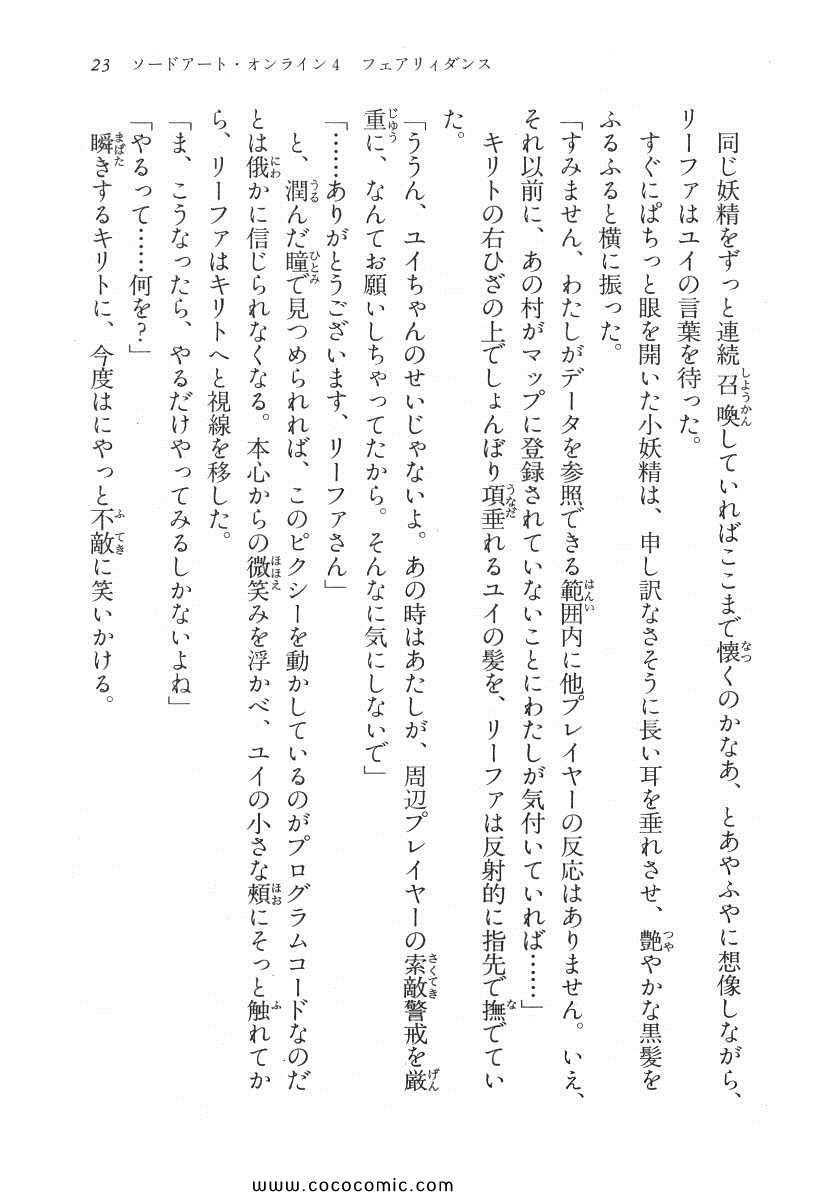 23　ソードアート・オンライン4　フェアリィダンス
　同じ妖精をずっと連続召喚していればここまで懐くのかなあ、とあやふやに想像しながら、
リーファはユイの言葉を待った。
　すぐにぱちっと眼を開いた小妖精は、申し訳なさそうに長い耳を垂れさせ、艶やかな黒髪を
ふるふると横に振った。
「すみません、わたしがデータを参照できる範囲内に他プレイヤーの反応はありません。いえ、
それ以前に、あの村がマップに登録されていないことにわたしが気付いていれば……」
　キリトの右ひざの上でしょんぼり項垂れるユイの髪を、リーファは反射的に指先で撫でてい
た。
「ううん、ユイちゃんのせいじゃないよ。あの時はあたしが、周辺プレイヤーの索敵警戒を厳
重に、なんてお願いしちゃってたから。そんなに気にしないで」
「……ありがとうございます、リーファさん」
　と、潤んだ瞳で見つめられれば、このピクシーを動かしているのがプログラムコードなのだ
とは俄かに信じられなくなる。本心からの微笑みを浮かべ、ユイの小さな頬にそっと触れてか
ら、リーファはキリトへと視線を移した。
「ま、こうなったら、やるだけやってみるしかないよね」
「やるって……何を?」
　瞬きするキリトに、今度はにやっと不敵に笑いかける。
www.cococomic.com